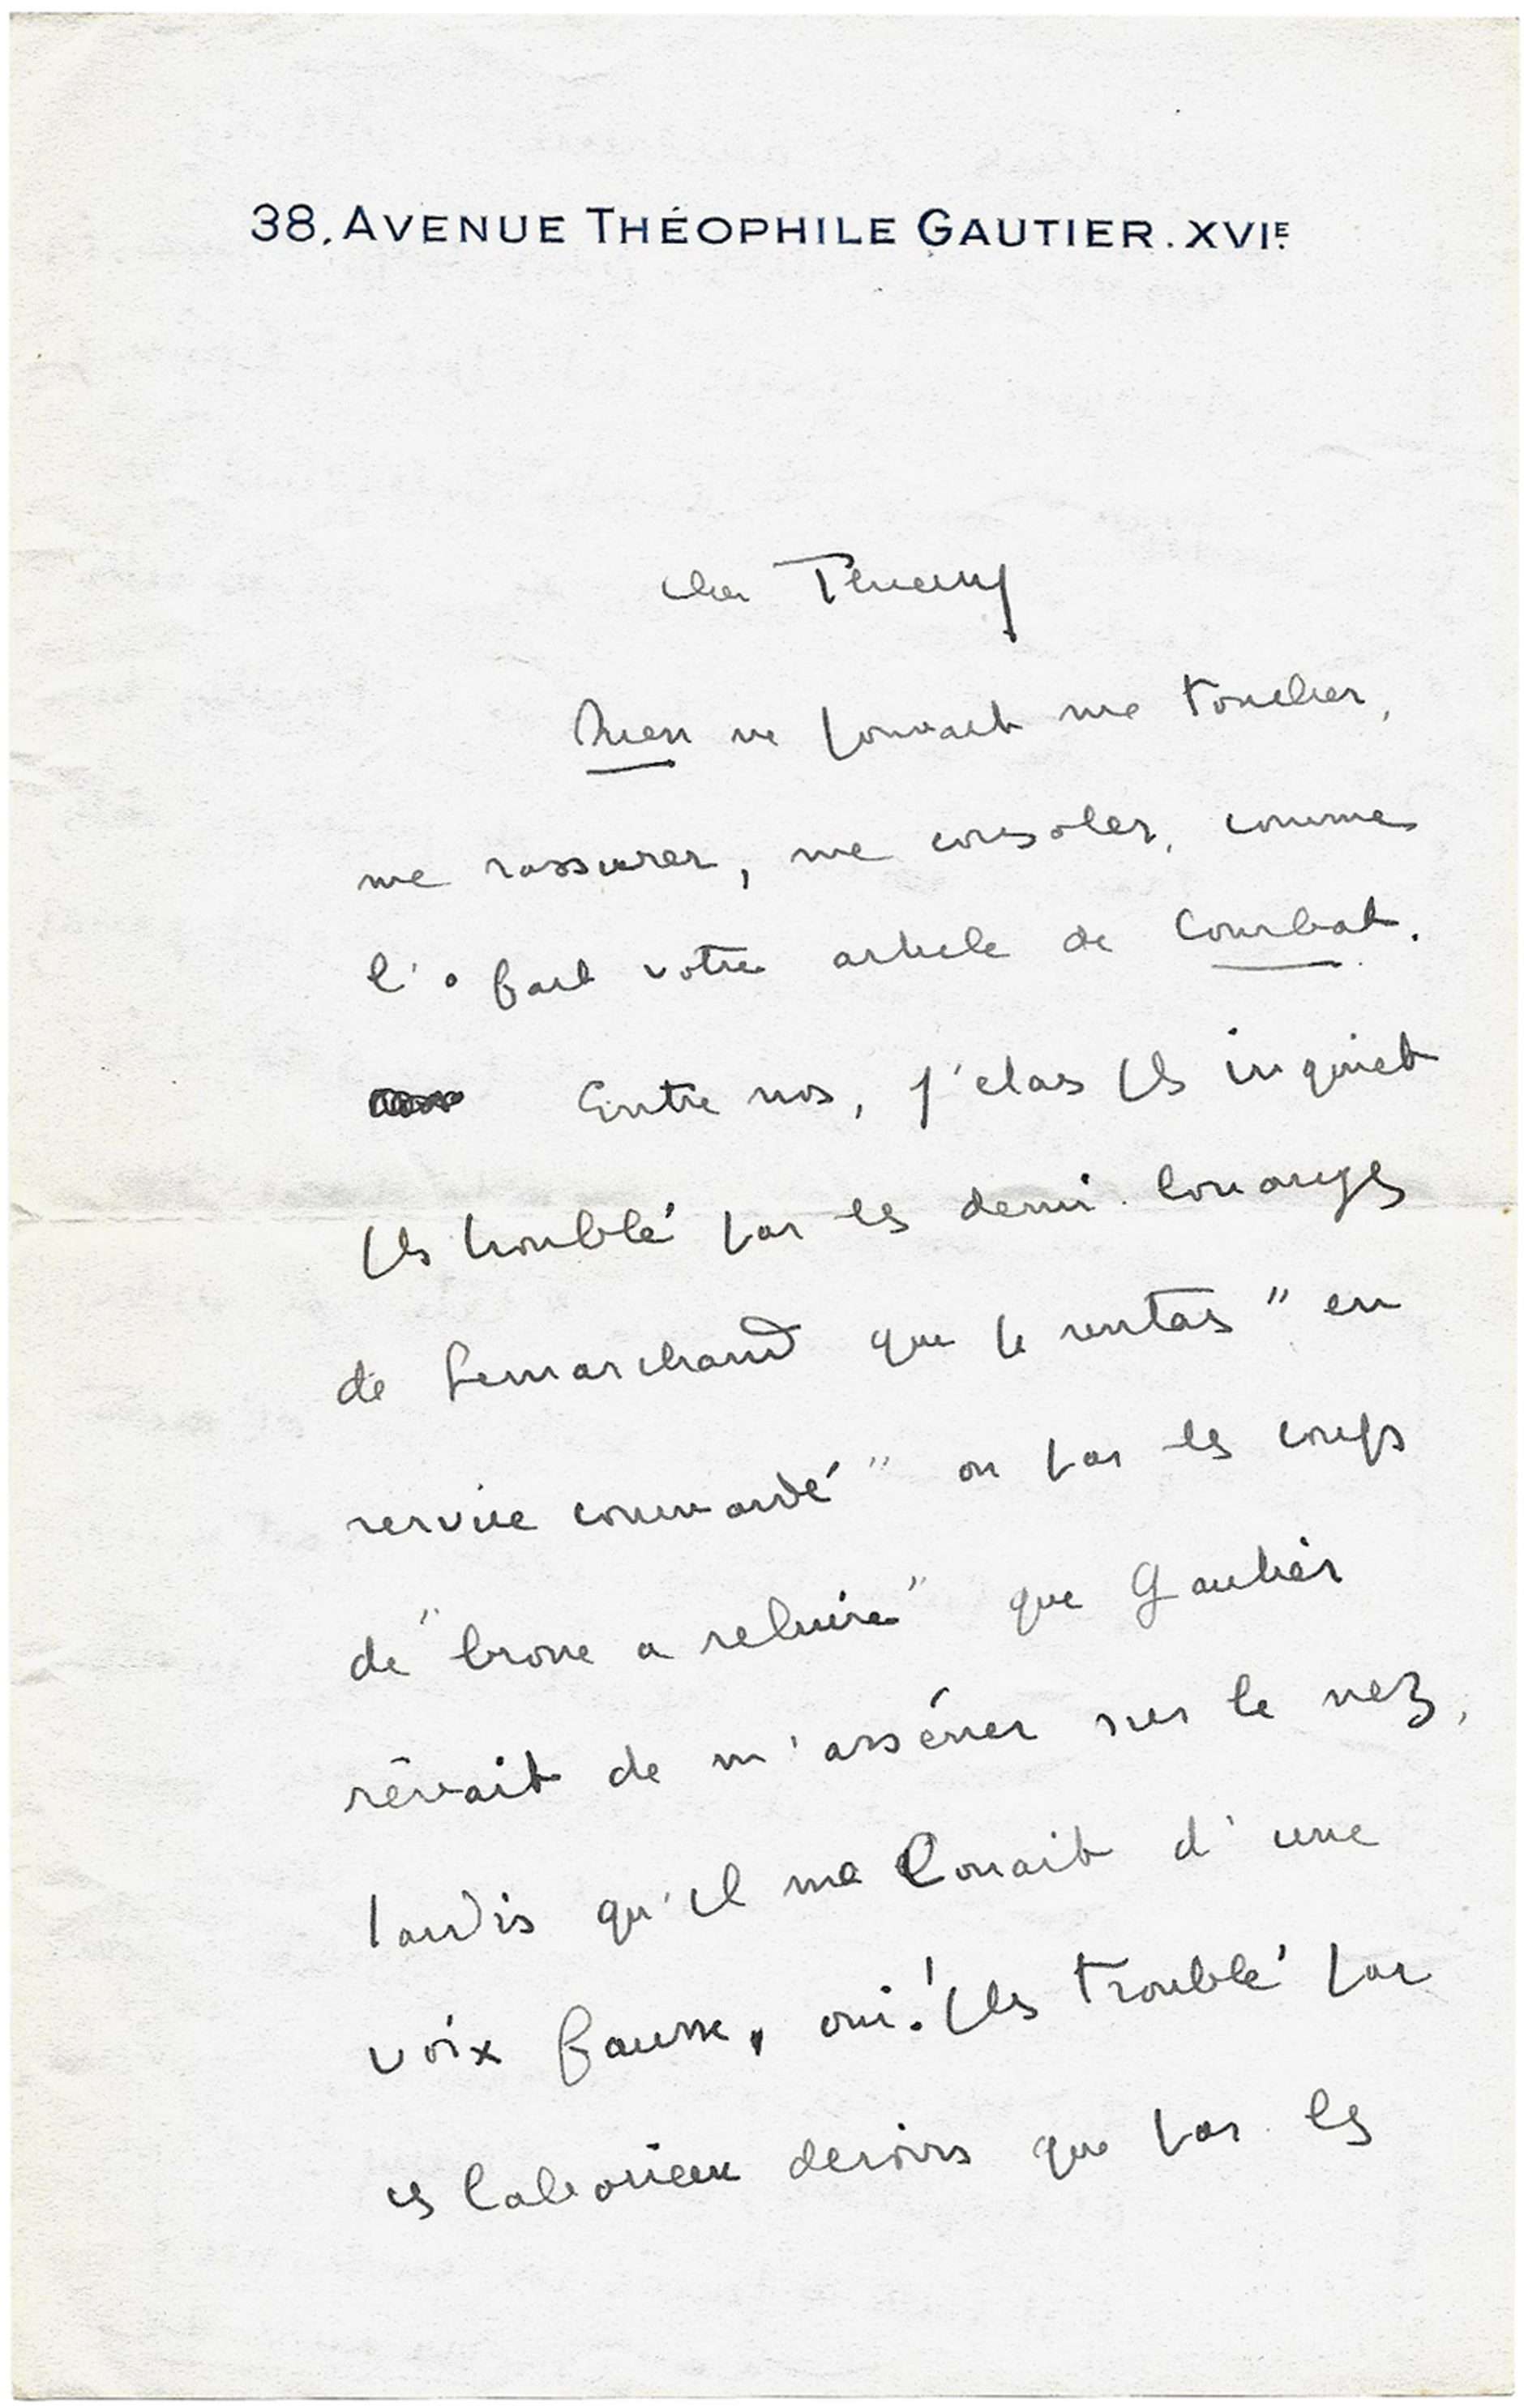 38, AVENUE THÉOPHILE GAUTIER. XVIE.
cher Thierry
Rien ne pouvait me toucher,
me rassurer, me consoler, comme
l'a fait votre article de Combat.
Entre nos, j'étais plus inquiet
plus troublé par les demi-louanges
de Lemarchand que je sentais "en
service commandé" ou par les coups
de "brosse a reluire" que Gautier
rêvait de m'asséner sur le nez,
tandis qu'il me louait d'une
voix fausse, oui! plus troublé par
ces laborieux devoirs que par les